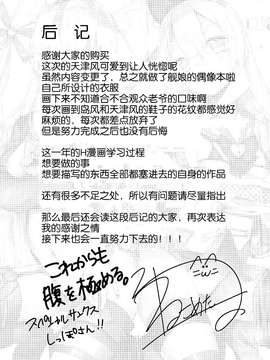 后记
感谢大家的购买
这次的天津风可爱到让人恍惚呢
虽然内容变更了，总之就做了舰娘的偶像本啦
自己所设计的衣服
画下来不知道合不合观众老爷的口味啊
每次画到岛风和天津风的鞋子的花纹都感觉好
麻烦的，每次都差点放弃了
但是努力完成之后也没有后悔
这一年的H漫画学习过程
想要做的事
想要描写的东西全部都塞进去的自身的作品
还有很多不足之处，所以有问题请尽量指出
那么最后还会读这段后记的大家，再次表达
我的感谢之情
接下来也会一直努力下去的！！！
これからも
腹を極める。
スペシャルサンクス
しっぽさん!!